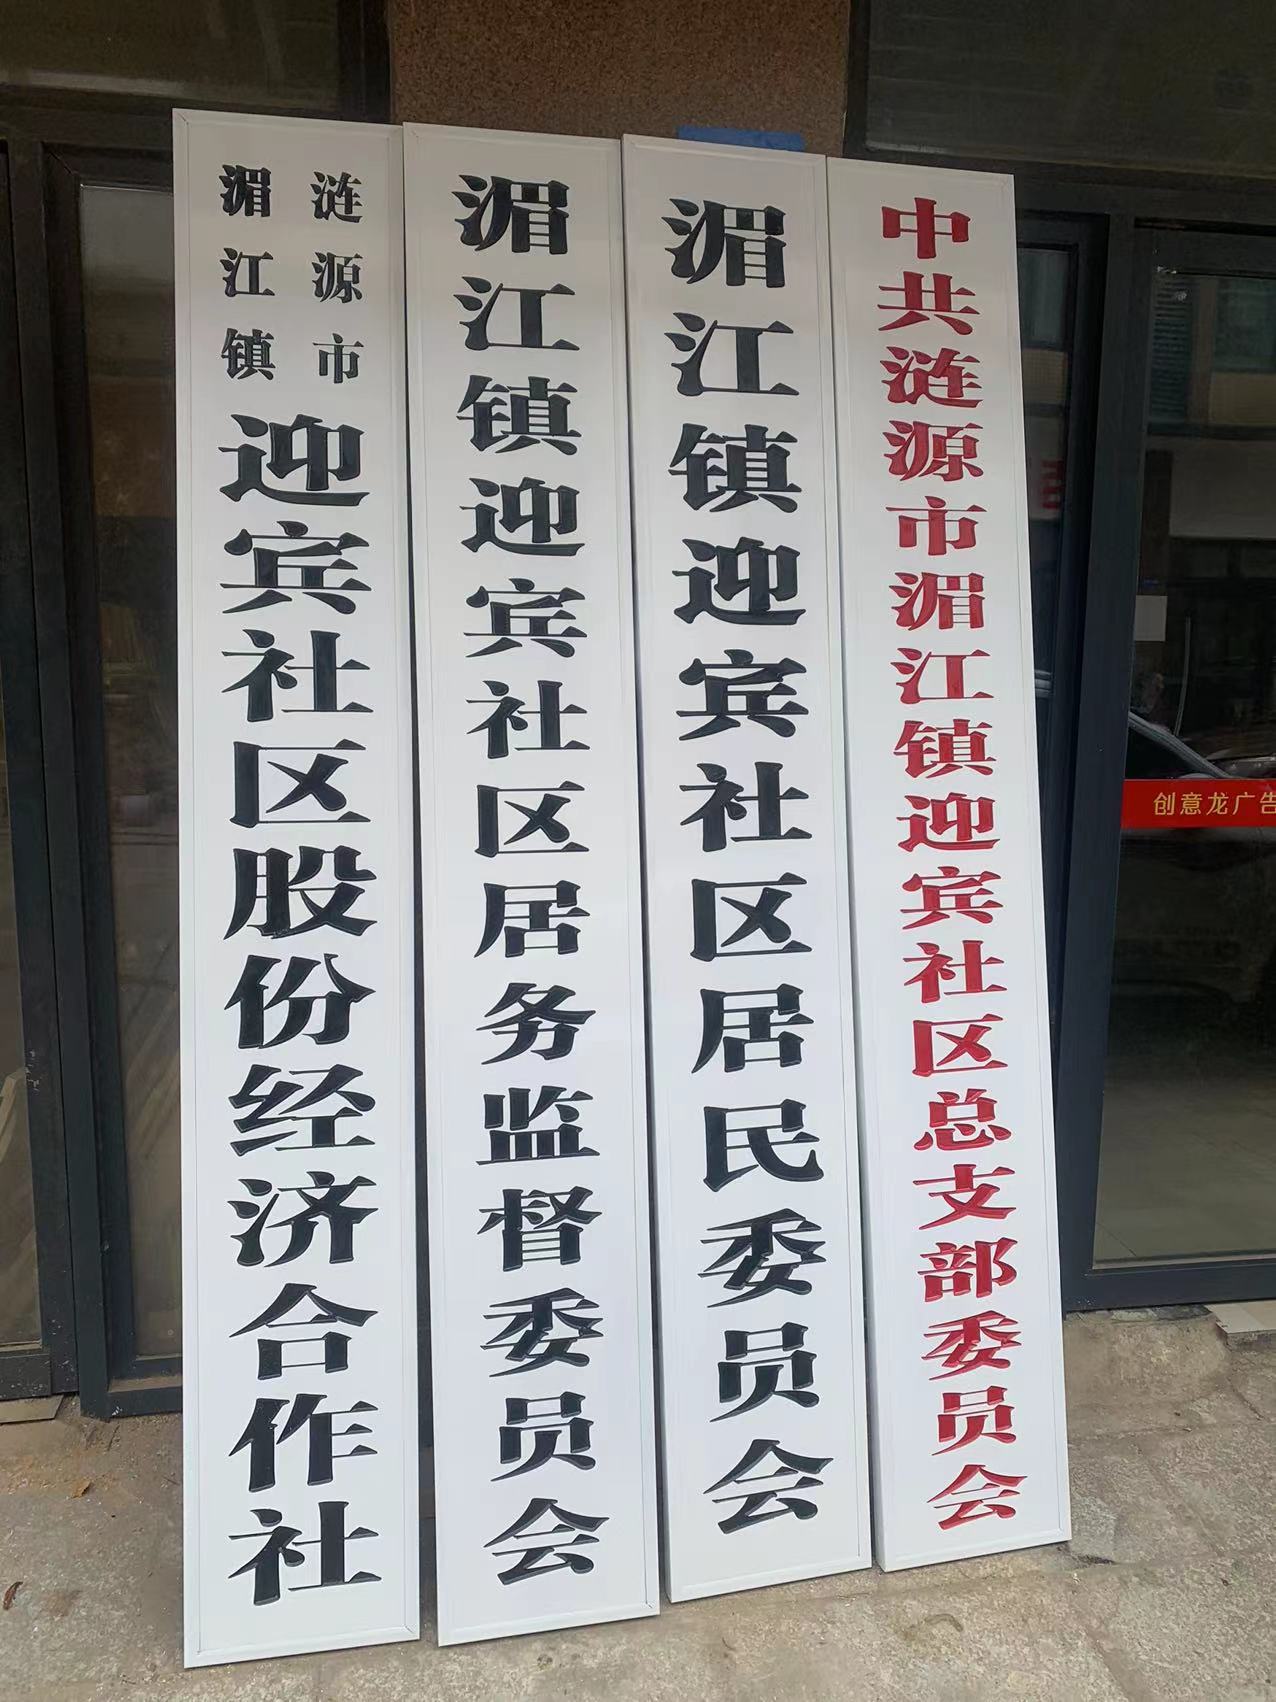 中共涟源市湄江镇迎宾社区总支部委员会
湄江镇迎宾社区居民委员会
湄江镇迎宾社区居务监督委员会
涟源市
湄江镇
迎宾社区股份经济合作社
创意龙广告